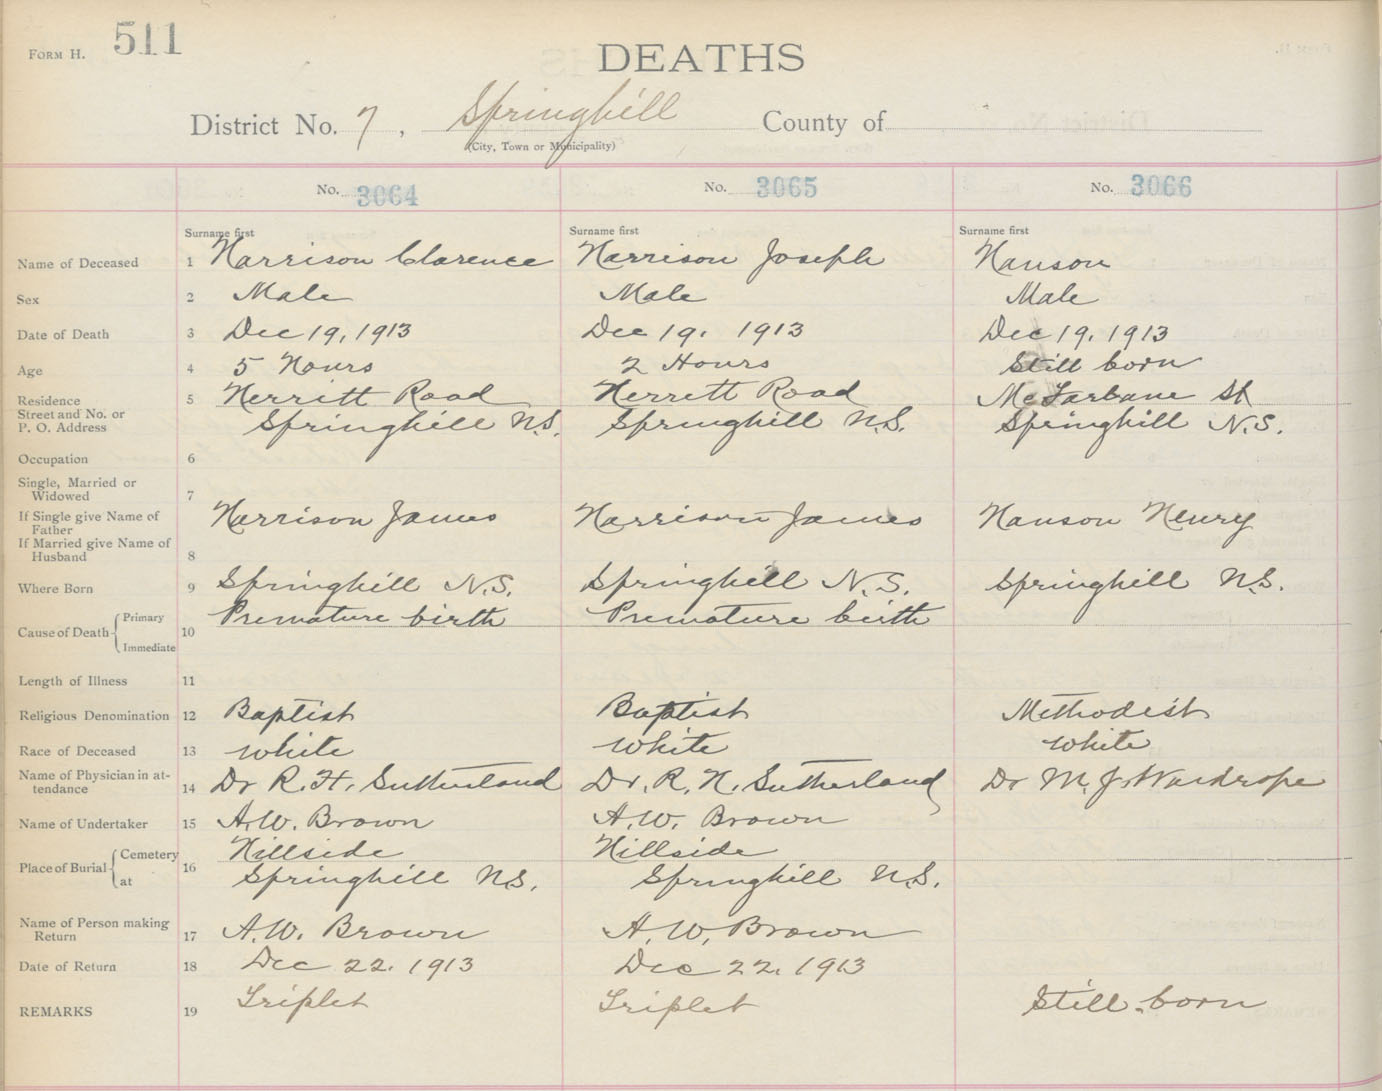 FORM H. 511
DEATHS
District No. 7, Springhill County of
(City, Town or Municipality)
No. 3064 No. 3065 No. 3066
Surname first Surname first Surname first
Name of Deceased 1 Harrison Clarence Harrison Joseph Hanson
Sex 2 Male Male Male
Date of Death 3 Dec 19, 1913 Dec 19. 1913 Dec 19. 1913
Age 4 5 Hours 2 Hours Still born
Residence 5 Herritt Road Herrett Road McFarlane St
Street and No. or
P. O. Address Springhill N.S. Springhill N.S. Springhill N.S.
Occupation 6
Single, Married or
Widowed 7
If Single give Name of Harrison James Harrison James Hanson Henry
Father
If Married give Name of
Husband 8
Where Born 9 Springhill N.S. Springhill N.S. Springhill N.S.
Primary Premature birth Premature birth
Cause of Death 10
Immediate
Length of Illness 11
Religious Denomination 12 Baptist Baptist Methodist
Race of Deceased 13 White White White
Name of Physician in at-
tendance 14 Dr R. H. Sutherland Dr. R. H. Sutherland Dr M. J. Wardrope
Name of Undertaker 15 A.W. Brown A.W. Brown
Cemetery Hillside Hillside
Place of Burial 16
at Springhill N.S. Springhill N.S.
Name of Person making
Return 17 A.W. Brown A.W. Brown
Date of Return 18 Dec 22. 1913 Dec 22. 1913
REMARKS 19 Triplet Triplet Still-born